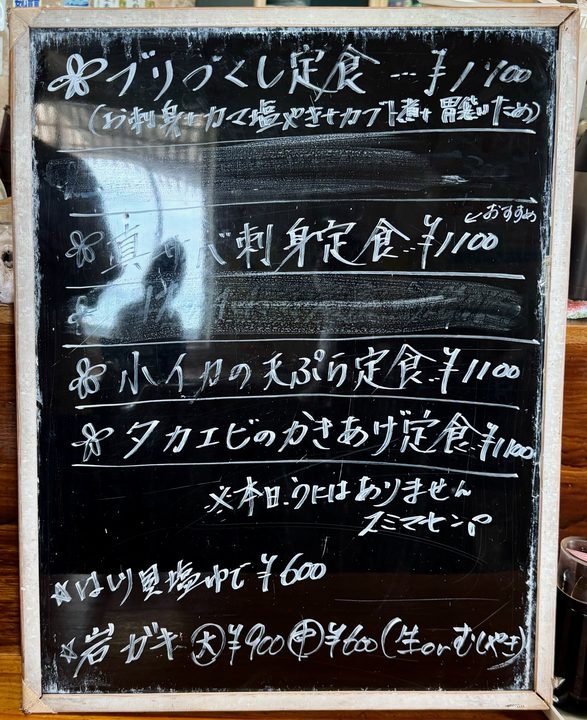 ブリづくし定食…¥1,100
(お刺身+カマ塩やき+カブト煮+胃袋いため)
おすすめ
真サバ刺身定食…¥1100
小イカの天ぷら定食…¥1100
タカエビのかきあげ定食…¥1,100
※本日うにはありません
スミマセン。
☆はしり貝塩ゆで¥600
☆岩ガキ 大¥900 中¥600(生orむしやき)